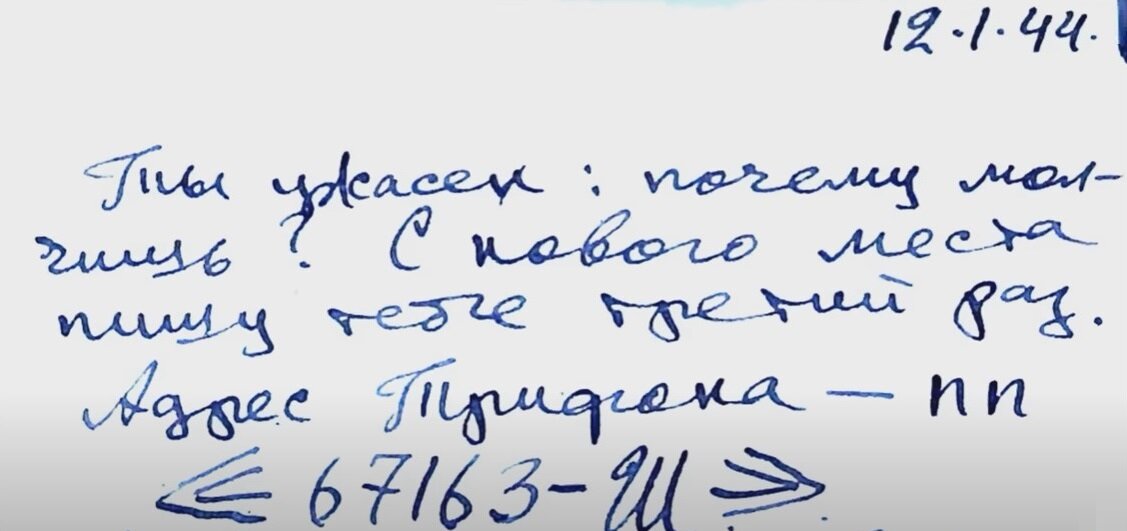 12.1.44.
Ты ужасен: почему мол-
чишь? С нового места
пишу тебе третий раз.
Адрес Трифона — пп
« 67163-Ш »